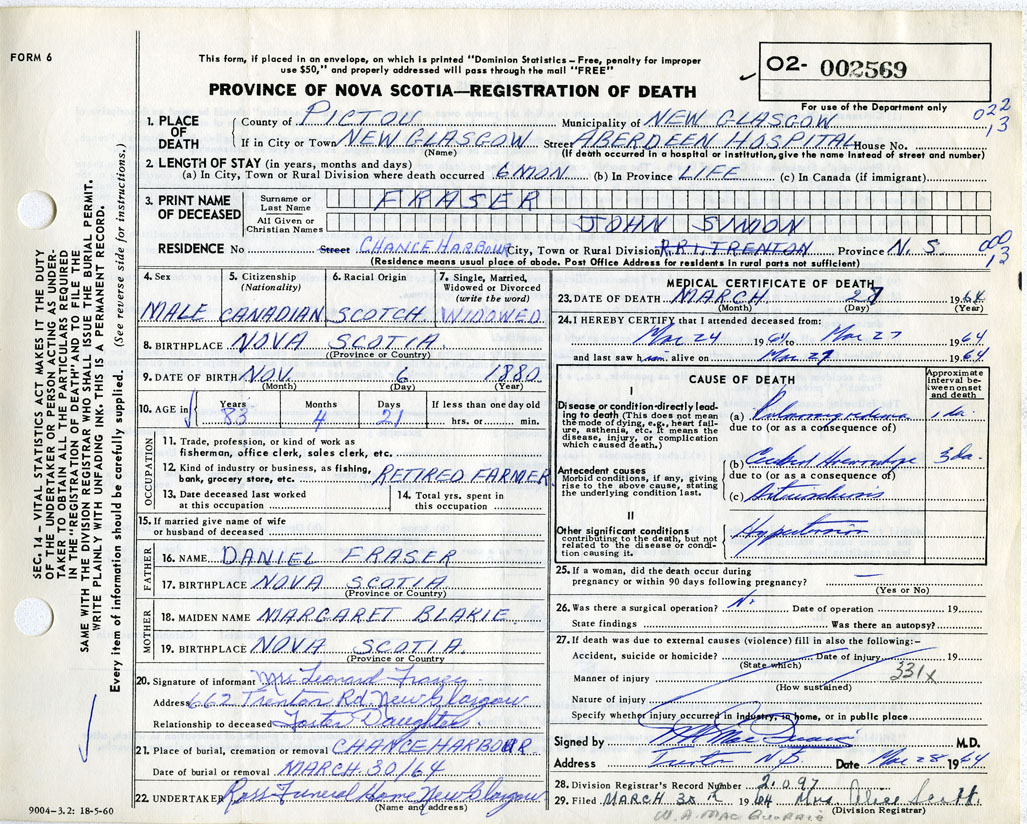 FORM 6
This form, if placed in an envelope, on which is printed "Dominion Statistics – Free, penalty for improper
use $50," and properly addressed will pass through the mail "FREE"
PROVINCE OF NOVA SCOTIA—REGISTRATION OF DEATH
02- 002569
For use of the Department only
022
13
1. PLACE OF DEATH County of PICTOU Municipality of NEW GLASGOW
If in City or Town NEW GLASGOW Street ABERDEEN HOSPITAL House No.
(Name) (If death occurred in a hospital or institution, give the name instead of street and number)
2. LENGTH OF STAY (in years, months and days)
(a) In City, Town or Rural Division where death occurred 6 MON. (b) In Province LIFE (c) In Canada (if immigrant)
3. PRINT NAME OF DECEASED
Surname or Last Name FRASER
All Given or Christian Names JOHN SIMON
RESIDENCE No Street CHANCE HARBOUR City, Town or Rural Division R.R.1, TRENTON Province N. S.
000
13
(Residence means usual place of abode. Post Office Address for residents in rural parts not sufficient)
4. Sex MALE
5. Citizenship (Nationality) CANADIAN
6. Racial Origin SCOTCH
7. Single, Married, Widowed or Divorced (write the word) WIDOWED
8. BIRTHPLACE NOVA SCOTIA
((Province or Country)
9. DATE OF BIRTH NOV. 6 1880
(Month) (Day) (Year)
10. AGE in Years 83 Months 4 Days 21 If less than one day old hrs. or min.
OCCUPATION
11. Trade, profession, or kind of work as
fisherman, office clerk, sales clerk, etc.
12. Kind of industry or business, as fishing,
bank, grocery store, etc. RETIRED FARMER
13. Date deceased last worked
at this occupation
14. Total yrs. spent in
this occupation
15. If married give name of wife
or husband of deceased
FATHER
16. NAME DANIEL FRASER
17. BIRTHPLACE NOVA SCOTIA
(Province or Country)
MOTHER
18. MAIDEN NAME MARGARET BLAKIE
19. BIRTHPLACE NOVA SCOTIA
(Province or Country
20. Signature of informant Leonard Fraser
Address 662 Trenton Rd. New Glasgow
Relationship to deceased Foster Daughter
21. Place of burial, cremation or removal CHANCE HARBOUR
Date of burial or removal MARCH 30/64
22. UNDERTAKER Ross Funeral Home New Glasgow
(Name and address)
9004-3.2: 18-5-60
MEDICAL CERTIFICATE OF DEATH
23. DATE OF DEATH MARCH 27 1964
(Month) (Day) (Year)
24. I HEREBY CERTIFY that I attended deceased from:
Mar 24 1964 to Mar 27 1964
and last saw him alive on Mar 27 1964
CAUSE OF DEATH
Approximate interval between onset and death
I
Disease or condition directly leading to death (This does not mean the mode of dying, e.g., heart failure, asthenia, etc. It means the disease, injury, or complication which caused death.)
(a) Pulmonary edema 1 da.
due to (or as a consequence of)
Antecedent causes
Morbid conditions, if any, giving rise to the above cause, stating the underlying condition last.
(b) Cerebral Hemorrhage 3 da.
due to (or as a consequence of)
(c) Arteriosclerosis
II
Other significant conditions
contributing to the death, but not related to the disease or condition causing it.
Hypertension
25. If a woman, did the death occur during
pregnancy or within 90 days following pregnancy? —
(Yes or No)
26. Was there a surgical operation? No Date of operation 19
State findings Was there an autopsy?
27. If death was due to external causes (violence) fill in also the following:–
Accident, suicide or homicide? Date of injury 19
(State which)
Manner of injury 331x
(How sustained)
Nature of injury
Specify whether injury occurred in industry, in home, or in public place
Signed by M.D.
Address Trenton N.S. Date Mar 28 1964
28. Division Registrar's Record Number 2097
29. Filed MARCH 30th 1964 Mrs. Alice Scott.
(Division Registrar)
SEC. 14 – VITAL STATISTICS ACT MAKES IT THE DUTY
OF THE UNDERTAKER OR PERSON ACTING AS UNDERTAKER
TO OBTAIN ALL THE PARTICULARS REQUIRED
IN THE "REGISTRATION OF DEATH" AND TO FILE THE
SAME WITH THE DIVISION REGISTRAR WHO SHALL ISSUE THE BURIAL PERMIT.
WRITE PLAINLY WITH UNFADING INK. THIS IS A PERMANENT RECORD.
Every item of information should be carefully supplied. (See reverse side for instructions.)